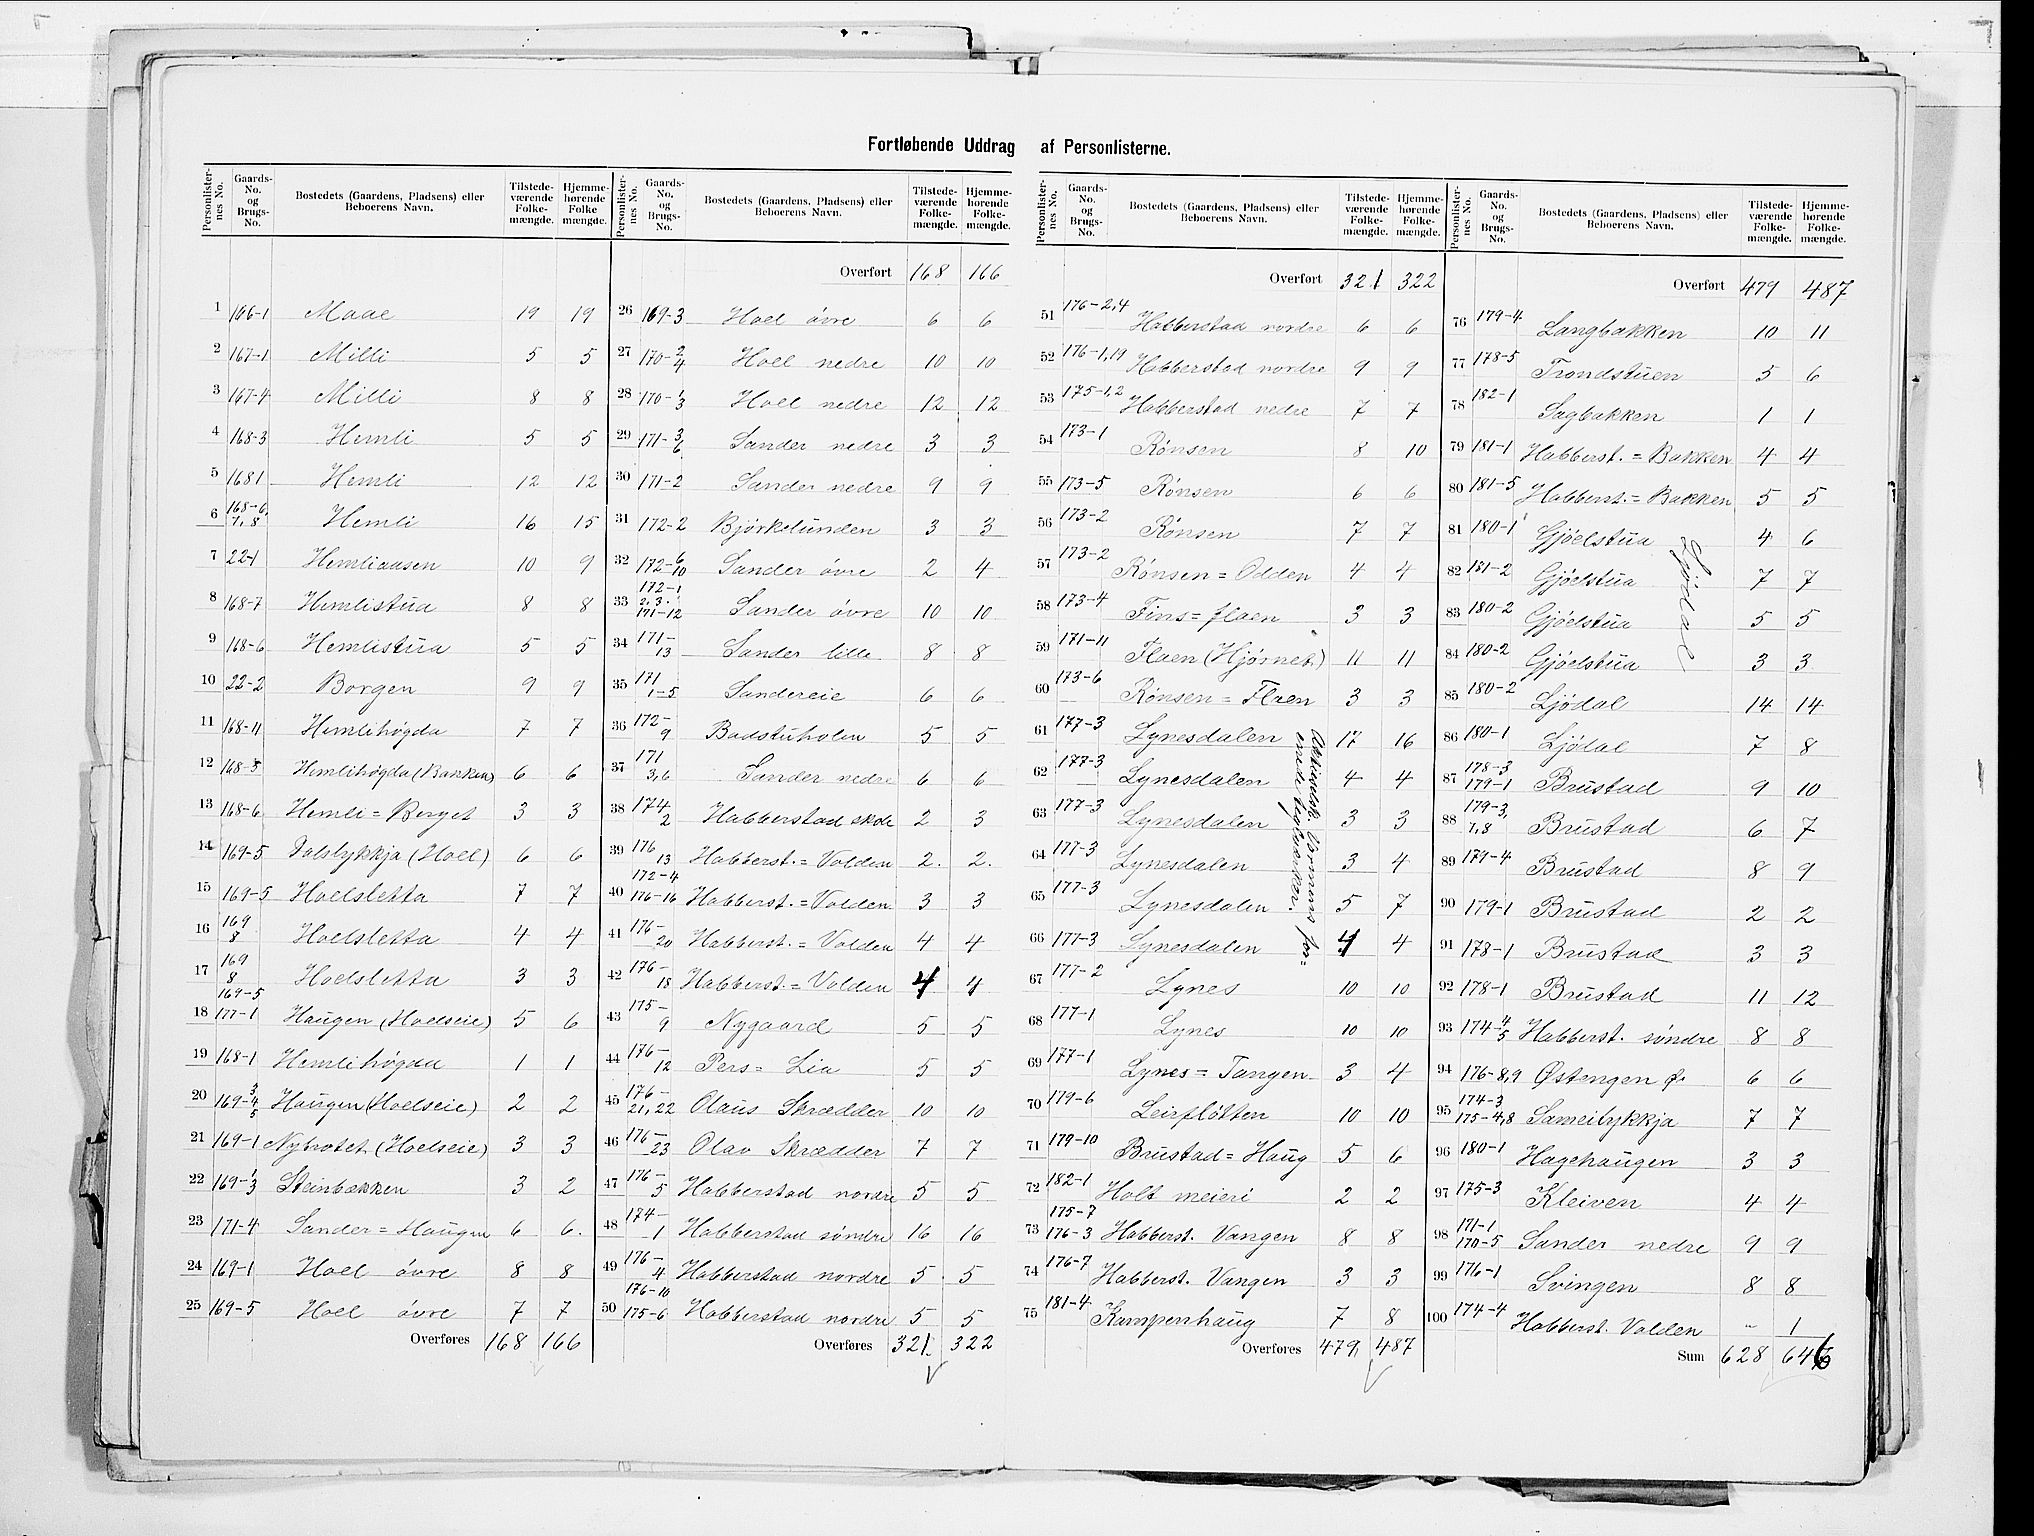 Fortløbende Uddrag af Personlisterne.
Personlister-nes No. Gaards-No. og Brugs-No. Bostedets (Gaardens, Pladsens) eller Beboerens Navn. Tilstede-værende Folke-mængde. Hjemme-hørende Folke mængde.
1 166-1 Maae 19 19
2 167-1 Milli 5 5
3 167-4 Milli 8 8
4 168-3 Hemli 5 5
5 1681 Hemli 12 12
6 168-6, 7,8 Hemli 16 15
7 22-1 Hemliaasen 10 9
8 168-7 Hemlistua 8 8
9 168-6 Hemlistua 5 5
10 22-2 Borgen 9 9
11 168-11 Hemlihøgda 7 7
12 168-5 Hemlihøgda (Bakken) 6 6
13 168-6 Hemli = Berget 3 3
14 169-5 Dalslykkja (Hoel) 6 6
15 169-5 Hoelsletta 7 7
16 169 8 Hoelsletta 4 4
17 169 8 Hoelsletta 3 3
18 169-5 177-1 Haugen (Hoelseie) 5 6
19 168-1 Hemlihøgda 1 1
20 169-3 4 5 Haugen (Hoelseie) 2 2
21 169-1 Nybrotet (Hoelseie) 3 3
22 169-1 3 Steinbakken 3 2
23 171-4 Sander = Haugen 6 6.
24 169-1 Hoel øvre 8 8
25 169-5 Hoel øvre 7 7
Overføres 168 166
Personlister-nes No. Gaards-No. og Brugs-No. Bostedets (Gaardens, Pladsens) eller Beboerens Navn. Tilstede-værende Folke-mængde. Hjemme-hørende Folke-mængde.
Overført 168 166
26 169-3 Hoel øvre 6 6
27 170-2 4 Hoel nedre 10 10
28 170-1 3 Hoel nedre 12 12
29 171-3 6 Sander nedre 3 3
30 171-2 Sander nedre 9 9
31 172-2 Bjørkelunden 3 3
32 172-6 10 Sander øvre 2 4
33 172-1 2,3. 171-12 Sander øvre 10 10
34 171- 13 Sander lille 8 8
35 171 1-5 Sandereie 6 6
36 172- 9 Badstuholen 5 5
37 171 3,6 Sander nedre 6 6
38 174 2 Habberstad skole 2 3
39 176 13 Habberst. = Volden 2. 2.
40 172-4 176-16 Habberst. = Volden 3 3
41 176- 20 Habberst. = Volden 4 4
42 176- 18 Habberst. = Volden 4 4
43 175- 9 Nygaard 5 5
44 176- 12 Pers = Lia 5 5
45 176- 21,22 Olaus Skrædder 10 10
46 176- 23 Olav Skrædder 7 7
47 176- 5 Habberstad nordre 5 5
48 174- 1 Habberstad søndre 16 16
49 176- 4 Habberstad nordre 5 5
50 176-10 175-6 Habberstad nordre 5 5
Overføres 321. 322
Personlister-nes No. Gaards-No. og Brugs-No. Bostedets (Gaardens, Pladsens) eller Beboerens Navn. Tilstede-værende Folke-mængde. Hjemme-hørende Folke-mængde.
Overført 321 322
51 176-2,4 Habberstad nordre 6 6
52 176-1,19 Habberstad nordre 9 9
53 175-1,2 Habberstad nedre 7 7
54 173-1 Rønsen 8 10
55 173-5 Rønsen 6 6
56 173-2 Rønsen 7 7
57 173-2 Rønsen = Odden 4 4
58 173-4 Fins = flaen 3 3
59 171-11 Flaen (Hjørnet) 11 11
60 173-6 Rønsen = Flaen 3 3
61 177-3 Lynesdalen 17 16
62 177-3 Lynesdalen 4 4
63 177-3 Lynesdalen 3 3
64 177-3 Lynesdalen 3 4
65 177-3 Lynesdalen 5 7
66 177-3 Lynesdalen 4 4
67 177-2 Lynes 10 10
68 177-1 Lynes 10 10
69 177-1 Lynes = Tangen 3 4
70 179-6 Leirfløtten 10 10
71 179-10 Brustad = Haug 5 6
72 182-1 Holt meieri 2 2
73 175-7 176-3 Habberst. Vangen 8 8
74 176-7 Habberst. Vangen 3 3
75 181-4 Kampenhaug 7 8
Overføres 479, 487
Personlister-nes No. Gaards-No. og Brugs-No. Bostedets (Gaardens, Pladsens) eller Beboerens Navn. Tilstede-værende Folke-mængde. Hjemme-hørende Folke-mængde.
Overført 479 487
76 179-4 Langbakken 10 11
77 178-5 Trondstuen 5 6
78 182-1 Sagbakken 1 1
79 181-1 Habberst. = Bakken 4 4
80 181-5 Habberst. = Bakken 5 5
81 180-1 Gjøelstua 4 6
82 181-2 Gjøelstua 7 7
83 180-2 Gjøelstua 5 5
84 180-2 Gjøelstua 3 3
Ljødal
85 180-2 Ljødal 14 14
86 180-1 Ljødal 7 8
87 178-3 179-1 Brustad 9 10
88 179-3, 7,8 Brustad 6 7
89 179-4 Brustad 8 9
90 179-1 Brustad 2 2
91 178-1 Brustad 3 3
92 178-1 Brustad 11 12
93 174-4 5 Habberst. søndre 8 8
94 176-8,9 Østengen Ø. 6 6
95 174-3 175-4,8 Sameilykkja 7 7
96 180-1 Hagehaugen 3 3
97 175-3 Kleiven 4 4
98 171-1 170-5 Sander nedre 9 9
99 176-1 Svingen 8 8
100 174-4 Habberst. Volden " 1
Sum 628 646